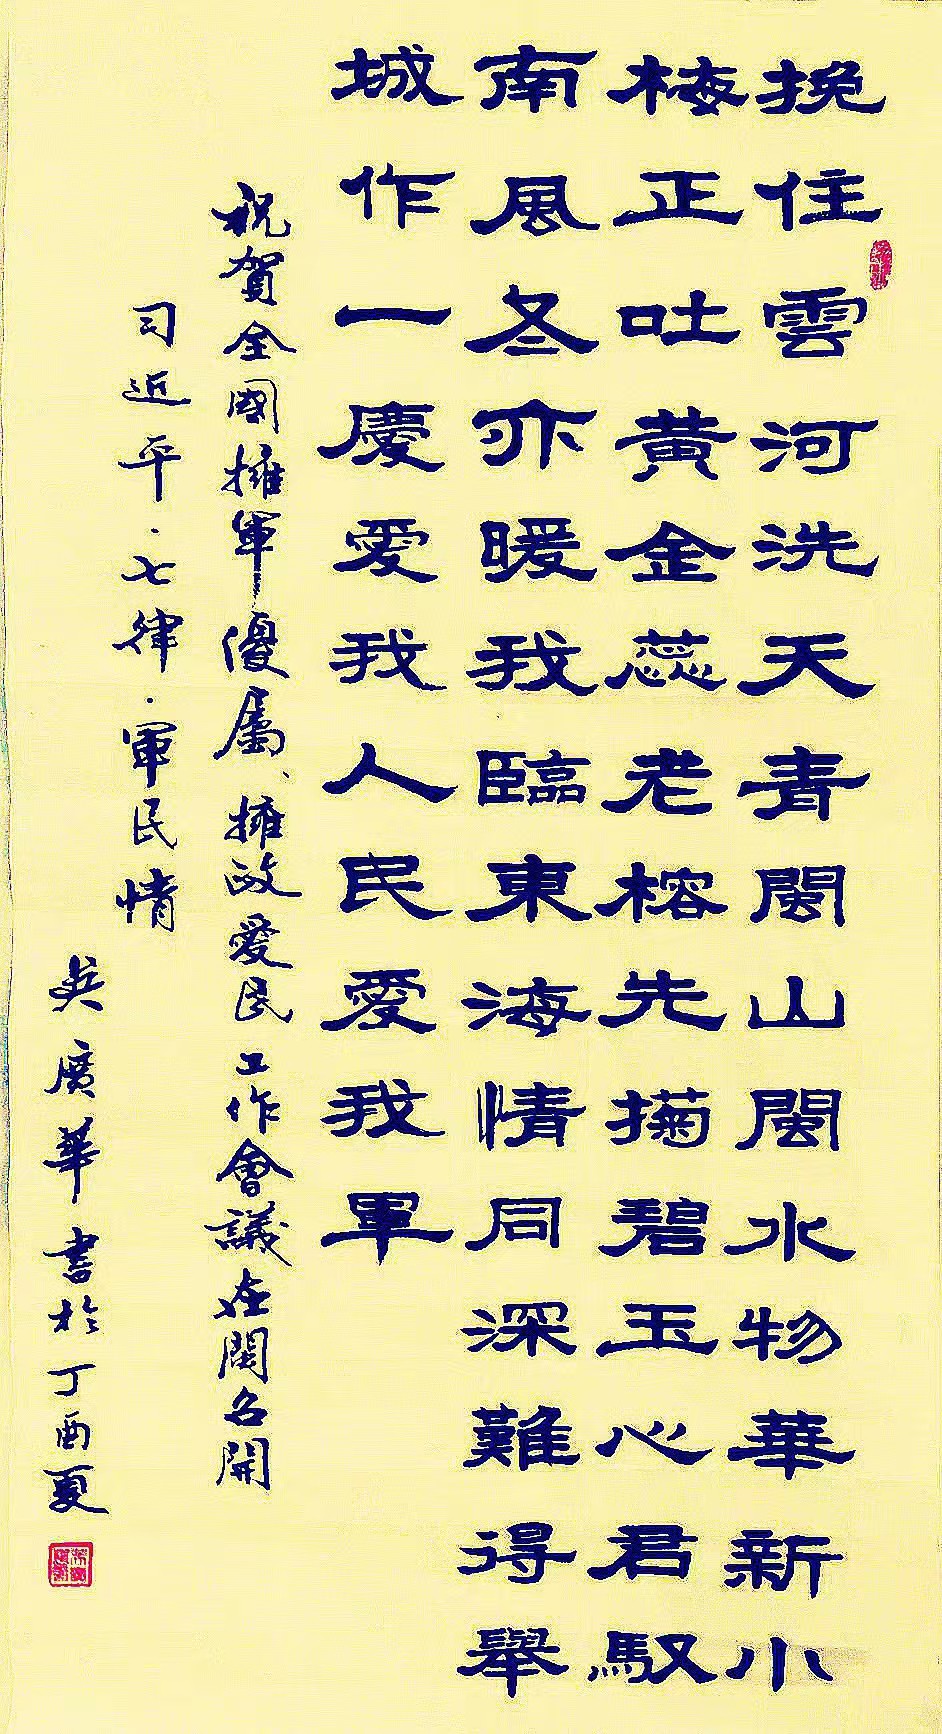 挽住雲河洗天青閩山閩水物華新小
梅正吐黄金蕊老榕先掬碧玉心君馭
南風冬亦暖我臨東海情同深難得舉
城作一慶愛我人民愛我軍
祝賀全國擁軍優屬、擁政愛民工作會議在閩召開
习近平·七律·軍民情
吴廣華書於丁酉夏